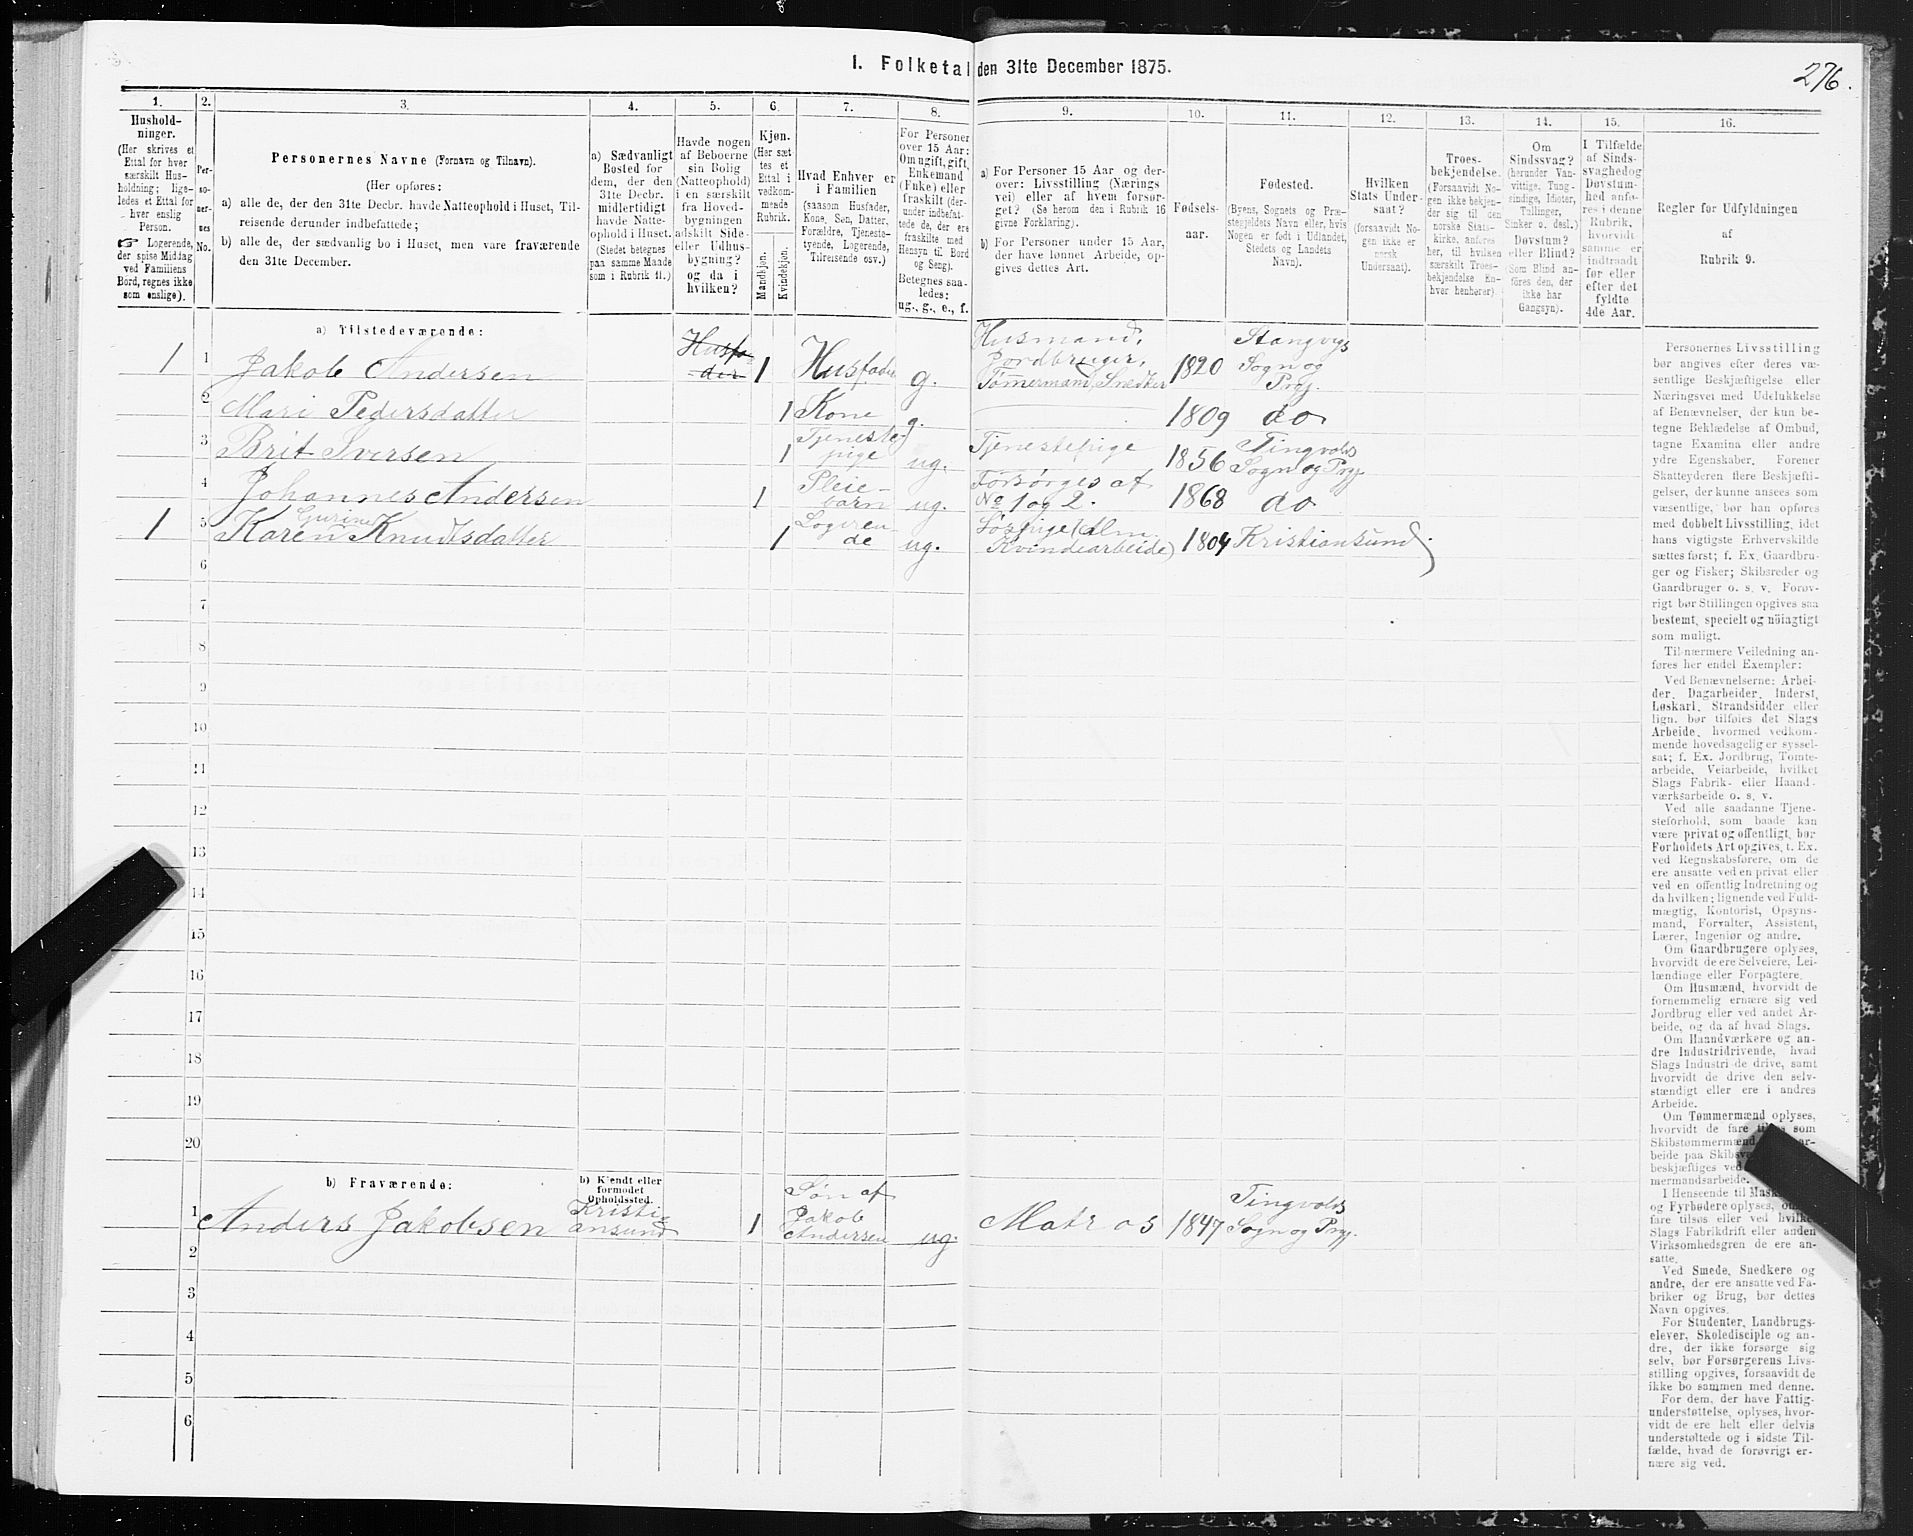 I. Folketal den 31te December 1875.
276.
1.
2.
3.
4.
5.
6.
7.
8.
9.
10.
11.
12.
13.
14.
15.
16.
Hushold-
ninger.
(Her skrives et
Ettal for hver
særskilt Hus-
holdning; lige-
ledes et Ettal for
hver enslig
Person.
☞ Logerende,
der spise Middag
ved Familiens
Bord, regnes ikke
som enslige).
Per-
so-
ner-
nes
No.
Personernes Navne (Fornavn og Tilnavn).
(Her opføres:
a) alle de, der den 31te Decbr. havde Natteophold i Huset, Til-
reisende derunder indbefattede;
b) alle de, der sædvanlig bo i Huset, men vare fraværende
den 31te December.
a) Sædvanligt
Bosted for
dem, der den
31te Decbr.
midlertidigt
havde Natte-
ophold i Huset.
(Stedet betegnes
paa samme Maade
som i Rubrik 11.)
Havde nogen
af Beboerne
sin Bolig
(Natteophold)
i en særskilt
fra Hoved-
bygningen
adskilt Side-
eller Udhus-
bygning?
og da i
hvilken?
Kjøn.
(Her sæt-
tes et
Ettal i
vedkom-
mende
Rubrik.
Mandkjøn.
Kvindekjøn.
Hvad Enhver er
i Familien
(saasom Husfader,
Kone, Søn, Datter,
Forældre, Tjeneste-
tyende, Logerende,
Tilreisende osv.)
For Personer
over 15 Aar:
Om ugift, gift,
Enkemand
(Enke) eller
fraskilt (der-
under indbefat-
tede de, der ere
fraskilte med
Hensyn til Bord
og Seng).
Betegnes saa-
ledes:
ug., g., e., f.
a) For Personer 15 Aar og der-
over: Livsstilling (Nærings
vei) eller af hvem forsør-
get? (Se herom den i Rubrik 16
givne Forklaring).
b) For Personer under 15 Aar,
der have lønnet Arbeide, op-
gives dettes Art.
Fødsels-
aar.
Fødested.
(Byens, Sognets og Præ-
stegjeldets Navn eller, hvis
Nogen er født i Udlandet,
Stedets og Landets
Navn).
Hvilken
Stats Under-
saat?
(forsaavidt No-
gen ikke er
norsk
Undersaat).
Troes-
bekjendelse.
(Forsaavidt No-
gen ikke bekjen-
der sig til den
norske Stats-
kirke, anføres
her, til hvilken
særskilt Troes-
bekjendelse En-
hver henhører).
Om
Sindssvag?
(herunder Van-
vittige, Tung-
sindige, Idioter,
Tullinger,
Sinker o. desl.)
Døvstum?
eller Blind?
(Som Blind an-
føres den, der
ikke har
Gangsyn).
I Tilfælde
af Sinds-
svaghed og
Døvstum-
hed anfø-
res i denne
Rubrik,
hvorvidt
samme er
indtraadt
før eller
efter det
fyldte
4de Aar.
Regler for Udfyldningen
af
Rubrik 9.
a) Tilstedeværende:
1 1 Jakob Andersen Husfa-
der 1 Husfader g. Husmand,
Jordbruger,
Tømmermand, Snedker 1820 Stangvigs
Sogn og
Prgj.
2 Mari Pedersdatter 1 Kone g. 1809 do
3 Brit Iversen 1 Tjeneste-
pige ug. Tjenestepige 1856 Tingvolds
Sogn og Prgj.
4 Johannes Andersen 1 Pleie-
barn ug. Forsørges af
No 1 og 2. 1868 do.
1 5 Karen Gurine Knudsdatter 1 Logeren-
de ug. Løspige (Alm.
Kvindearbeide) 1804 Kristiansund.
6
7
8
9
10
11
12
13
14
15
16
17
18
19
20
b) Fraværende:
b) Kjendt eller
formodet
Opholdssted.
1 Anders Jakobsen Kristi-
ansund 1 Søn af
Jakob
Andersen ug. Matros 1847 Tingvolds
Sogn og Prgj.
2
3
4
5
6
Personernes Livsstilling
bør angives efter deres væ-
sentlige Beskjæftigelse eller
Næringsvei med Udelukkelse
af Benævnelser, der kun be-
tegne Beklædelse af Ombud,
tagne Examina eller andre
ydre Egenskaber. Forener
Skatteyderen flere Beskjæfti-
gelser, der kunne ansees som
væsentlige, bør han opføres
med dobbelt Livsstilling, idet
hans vigtigste Erhvervskilde
sættes først; f. Ex. Gaardbru-
ger og Fisker; Skibsreder og
Gaardbruger o. s. v. Forøv-
rigt bør Stillingen opgives saa
bestemt, specielt og nøiagtigt
som muligt.
Til nærmere Veiledning an-
føres her endel Exempler:
Ved Benævnelserne: Arbei-
der, Dagarbeider, Inderst,
Løskarl, Strandsidder eller
lign. bør tilføies det Slags
Arbeide, hvormed vedkom-
mende hovedsagelig er syssel-
sat; f. Ex. Jordbrug, Tomte-
arbeide, Veiarbeide, hvilket
Slags Fabrik- eller Haand-
værksarbeide o. s. v.
Ved alle saadanne Tjene-
steforhold, som baade kan
være privat og offentligt, bør
Forholdets Art opgives, t. Ex.
ved Regnskabsførere, om de
ere ansatte ved en privat eller
ved en offentlig Indretning og
da hvilken; lignende ved Fuld-
mægtig, Kontorist, Opsyns-
mand, Forvalter, Assistent,
Lærer, Ingeniør og andre.
Om Gaardbrugere oplyses,
hvorvidt de ere Selveiere, Lei-
lændinge eller Forpagtere.
Om Husmænd, hvorvidt de
fornemmelig ernære sig ved
Jordbrug eller ved andet Ar-
beide, og da af hvad Slags.
Om Haandværkere og an-
dre Industridrivende, hvad
Slags Industri de drive, samt
hvorvidt de drive den selv-
stændigt eller ere i andres
Arbeide.
Om Tømmermænd oplyses,
hvorvidt de fare tilsøs som
Skibstømmermænd
beide paa
beskjæftiges ved
mermandsarbeide.
I Henseende til
og Fyrbødere oplyses,
fare tilsøs eller ved hvilke
Slags Fabrikdrift eller anden
Virksomhedsgren de ere an-
satte.
Ved Smede, Snedkere og
andre, der ere ansatte ved Fa-
briker og Brug, bør dettes
Navn opgives.
For Studenter, Landbrugs-
elever, Skoledisciple og an-
dre, der ikke forsørge sig
selv, bør Forsørgerens Livs-
stilling opgives, forsaavidt de
ikke bo sammen med denne.
For dem, der have Fattig-
understøttelse, oplyses, hvor-
vidt de ere helt eller delvis
understøttede og i sidste Til-
fælde, hvad de forøvrigt er-
nære sig ved.